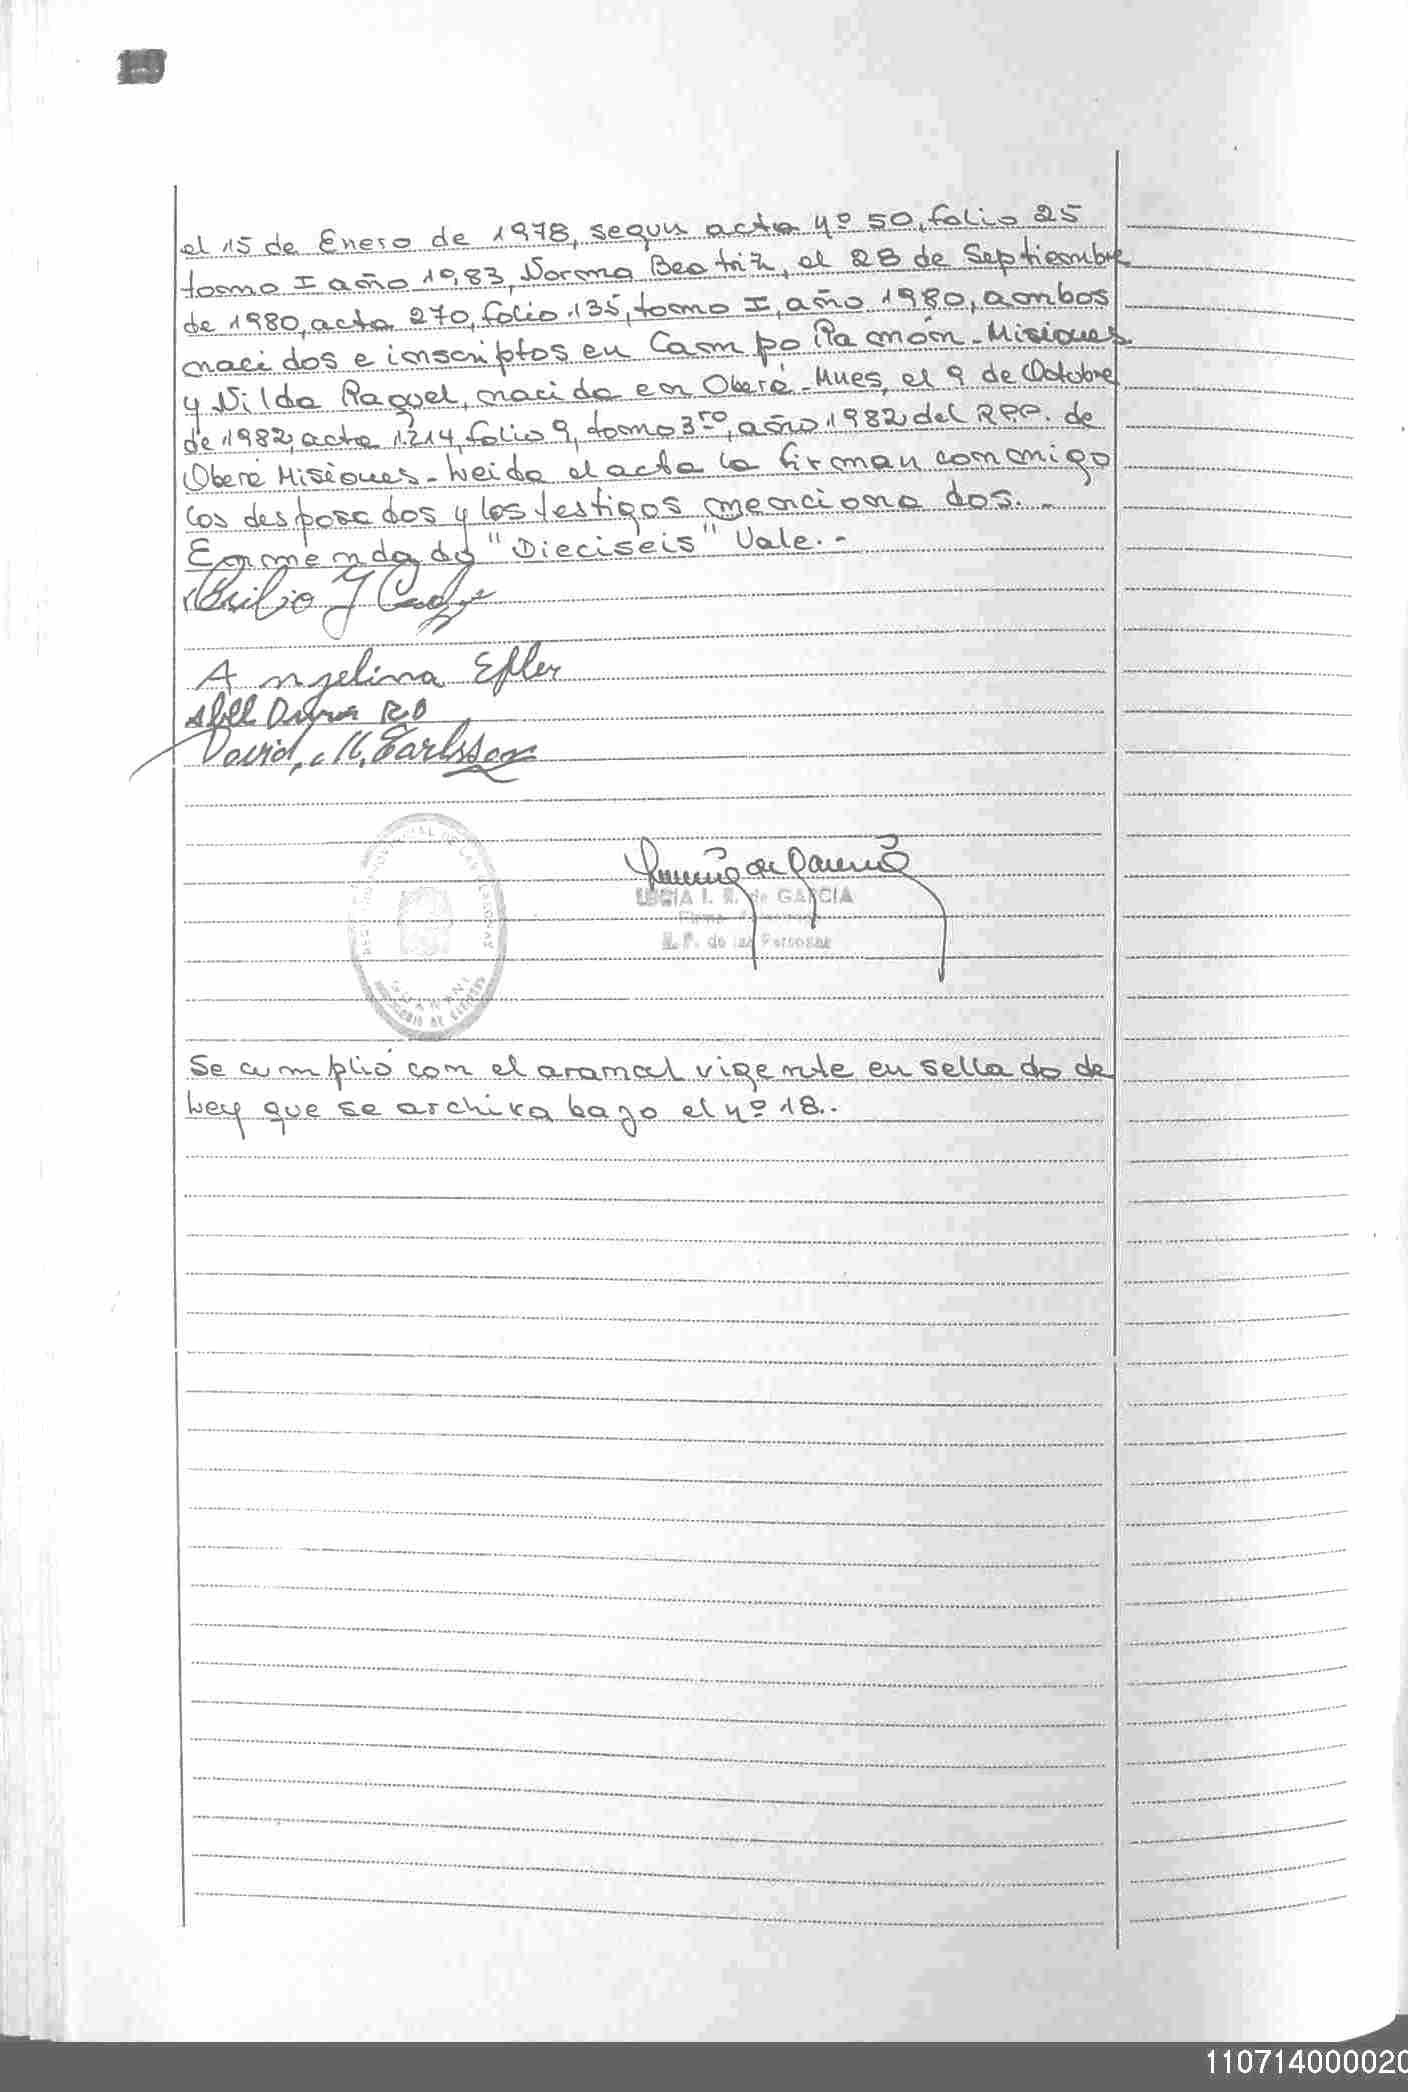 el 15 de Enero de 1978, segun acta nº 50, folio 25
tomo I año 1983, Norma Beatriz, el 28 de Septiembre
de 1980, acta 270, folio 135, tomo I, año 1980, ambos
nacidos e inscriptos en Campo Ramón - Misiones
y Nilda Raquel, nacida en Oberá - Mnes, el 9 de Octubre
de 1982, acta 1214, folio 9, tomo 3ro, año 1982 del R.P.P. de
Oberá Misiones - Leida el acta la firman conmigo
los desposados y los testigos mencionados. -
Enmendado "Dieciseis" Vale. -
Angelina Efler
David, M. Carlsson
LUCIA I. de GARCIA
R. P. de las Personas
PROVINCIAL DE LAS PERSONAS
GUARANI
Se cumplió con el arancel vigente en sellado de
Ley que se archiva bajo el nº 18. -
110714000020